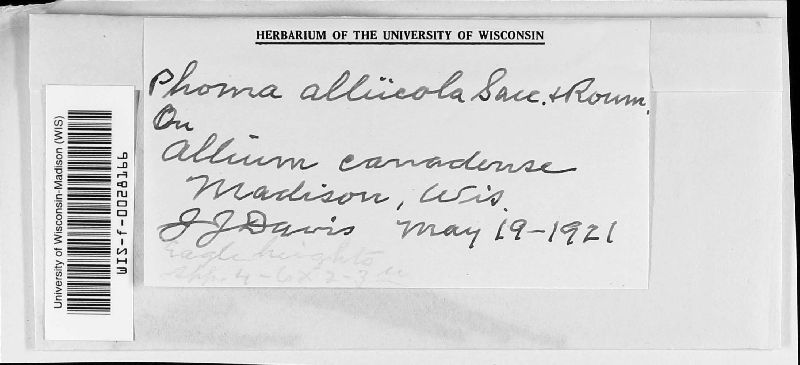 HERBARIUM OF THE UNIVERSITY OF WISCONSIN
Phoma alliicola Sacc. & Roum.
On
Allium canadense
Madison, Wis.
J J Davis May 19-1921
Eagle heights
spn. 4-6 x 2-3 µ
University of Wisconsin-Madison (WIS)
WIS-f-0028166